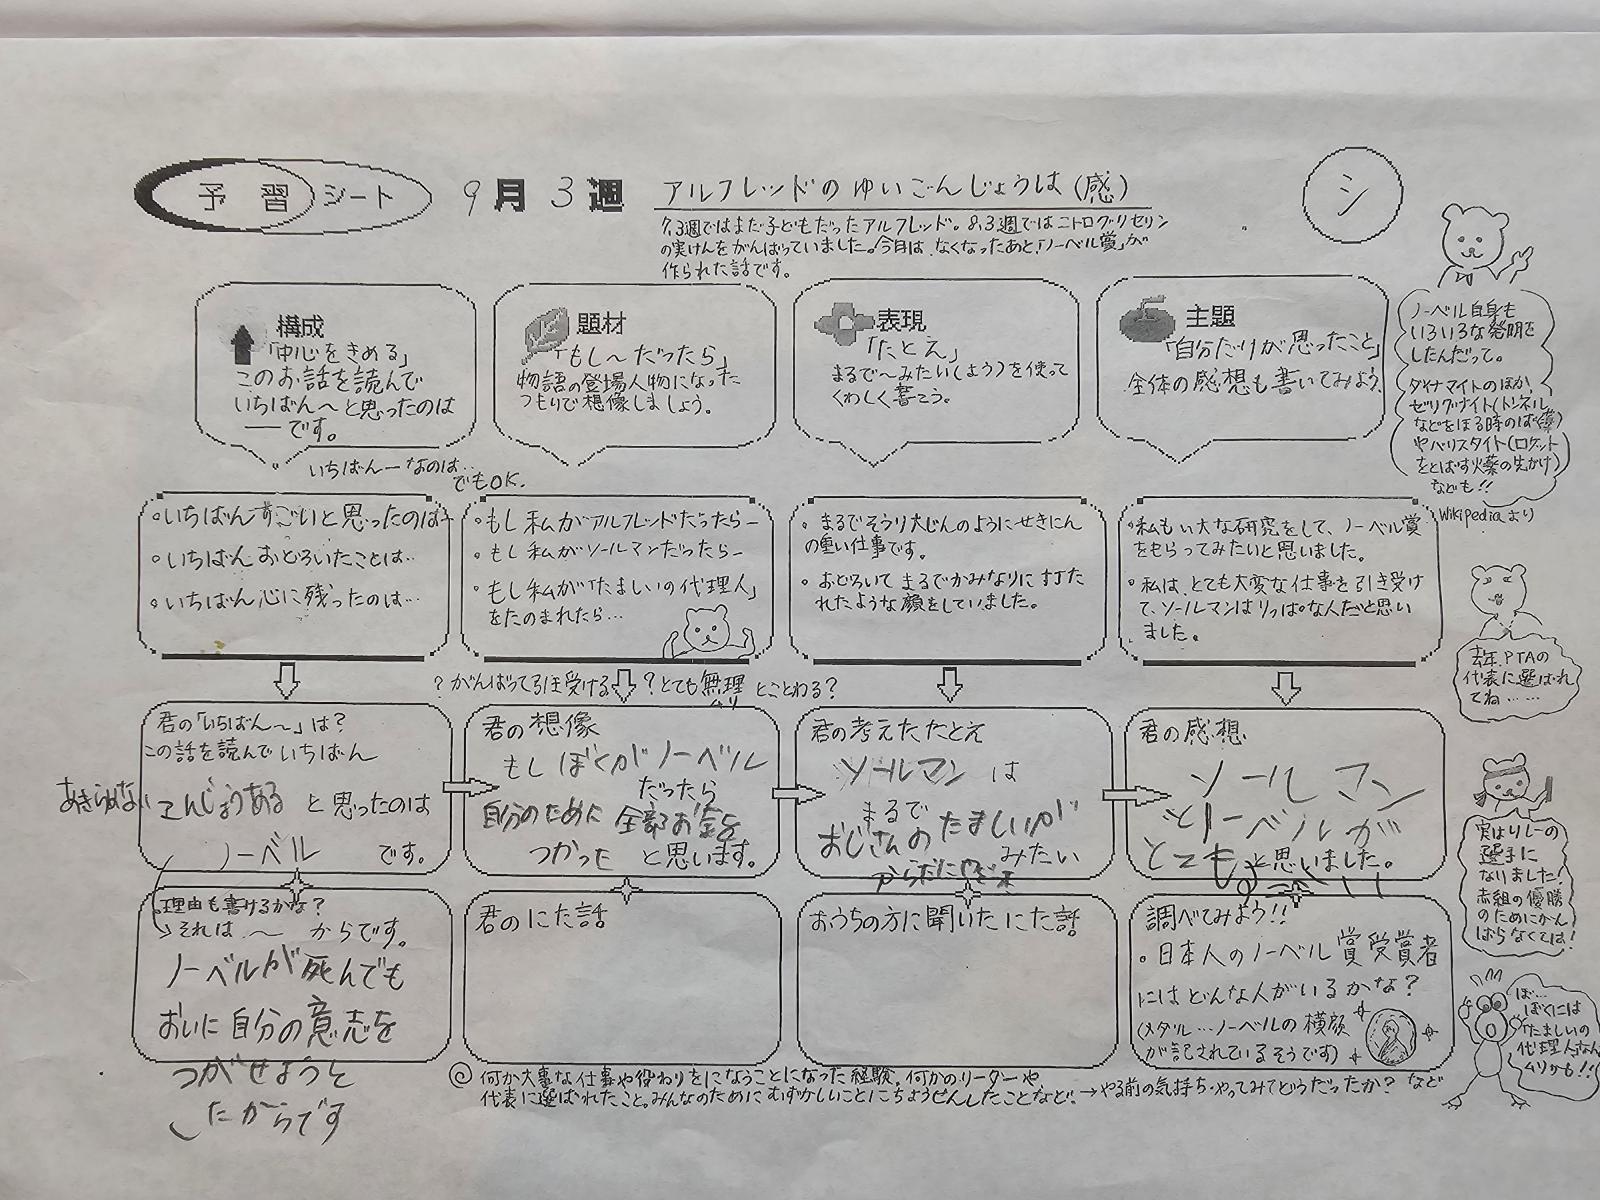 予習シート 9月3週 アルフレッドのゆいごんじょうは(感)
シ
7.3週ではまだ子どもだったアルフレッド。8.3週ではニトログリセリン
の実けんをがんばっていました。今月は、なくなったあと「ノーベル賞」が
作られた話です。
構成
「中心をきめる」
このお話を読んで
いちばん〜と思ったのは
―です。
いちばん―なのは…
でもOK.
題材
「もし〜だったら」
物語の登場人物になった
つもりで想像しましょう。
表現
「たとえ」
まるで〜みたい(よう)を使って
くわしく書こう。
主題
「自分だけが思ったこと」
全体の感想も書いてみよう。
ノーベル自身も
いろいろな発明を
したんだって。
ダイナマイトのほか、
ゼリグナイト(トンネル
などをほる時のばく薬)
やバリスタイト(ロケット
をとばす火薬の先がけ)
なども!!
Wikipediaより
・いちばんすごいと思ったのは―
・いちばんおどろいたことは…
・いちばん心に残ったのは…
・もし私がアルフレッドだったら―
・もし私がソールマンだったら―
・もし私が「たましいの代理人」
をたのまれたら…
・まるでそうり大じんのようにせきにん
の重い仕事です。
・おどろいてまるでかみなりにうた
れたような顔をしていました。
・私もい大な研究をして、ノーベル賞
をもらってみたいと思いました。
・私は、とても大変な仕事を引き受け
て、ソールマンはりっぱな人だと思い
ました。
去年、PTAの
代表に選ばれ
てね……
?がんばって引き受ける ?とても無理とことわる?
むり
君の「いちばん〜」は?
この話を読んでいちばん
あきらめない こんじょうある と思ったのは
ノーベル です。
君の想像
もしぼくがノーベル
だったら
自分のために全部お金を
つかった と思います。
君の考えたたとえ
ソールマン は
まるで
おじさんのたましいが
みたい
からだに
君の感想
ソールマン
とノーベルが
とても と思いました。
実はリレーの
選手に
なりました!
赤組の優勝
のためにがん
ばらなくては!
理由も書けるかな?
→それは〜からです。
ノーベルが死んでも
おいに自分の意志を
つがせようと
したからです
君のにた話
おうちの方に聞いたにた話
調べてみよう!!
・日本人のノーベル賞受賞者
にはどんな人がいるかな?
(メダル…ノーベルの横顔
が記されているそうです)
ぼ…
ぼくには
「たましいの
代理人」なん
ムリかも!!
◎何か大事な仕事や役わりをになうことになった経験。何かのリーダーや
代表に選ばれたこと。みんなのためにむずかしいことにちょうせんしたことなど。→やる前の気持ち・やってみてどうだったか?など